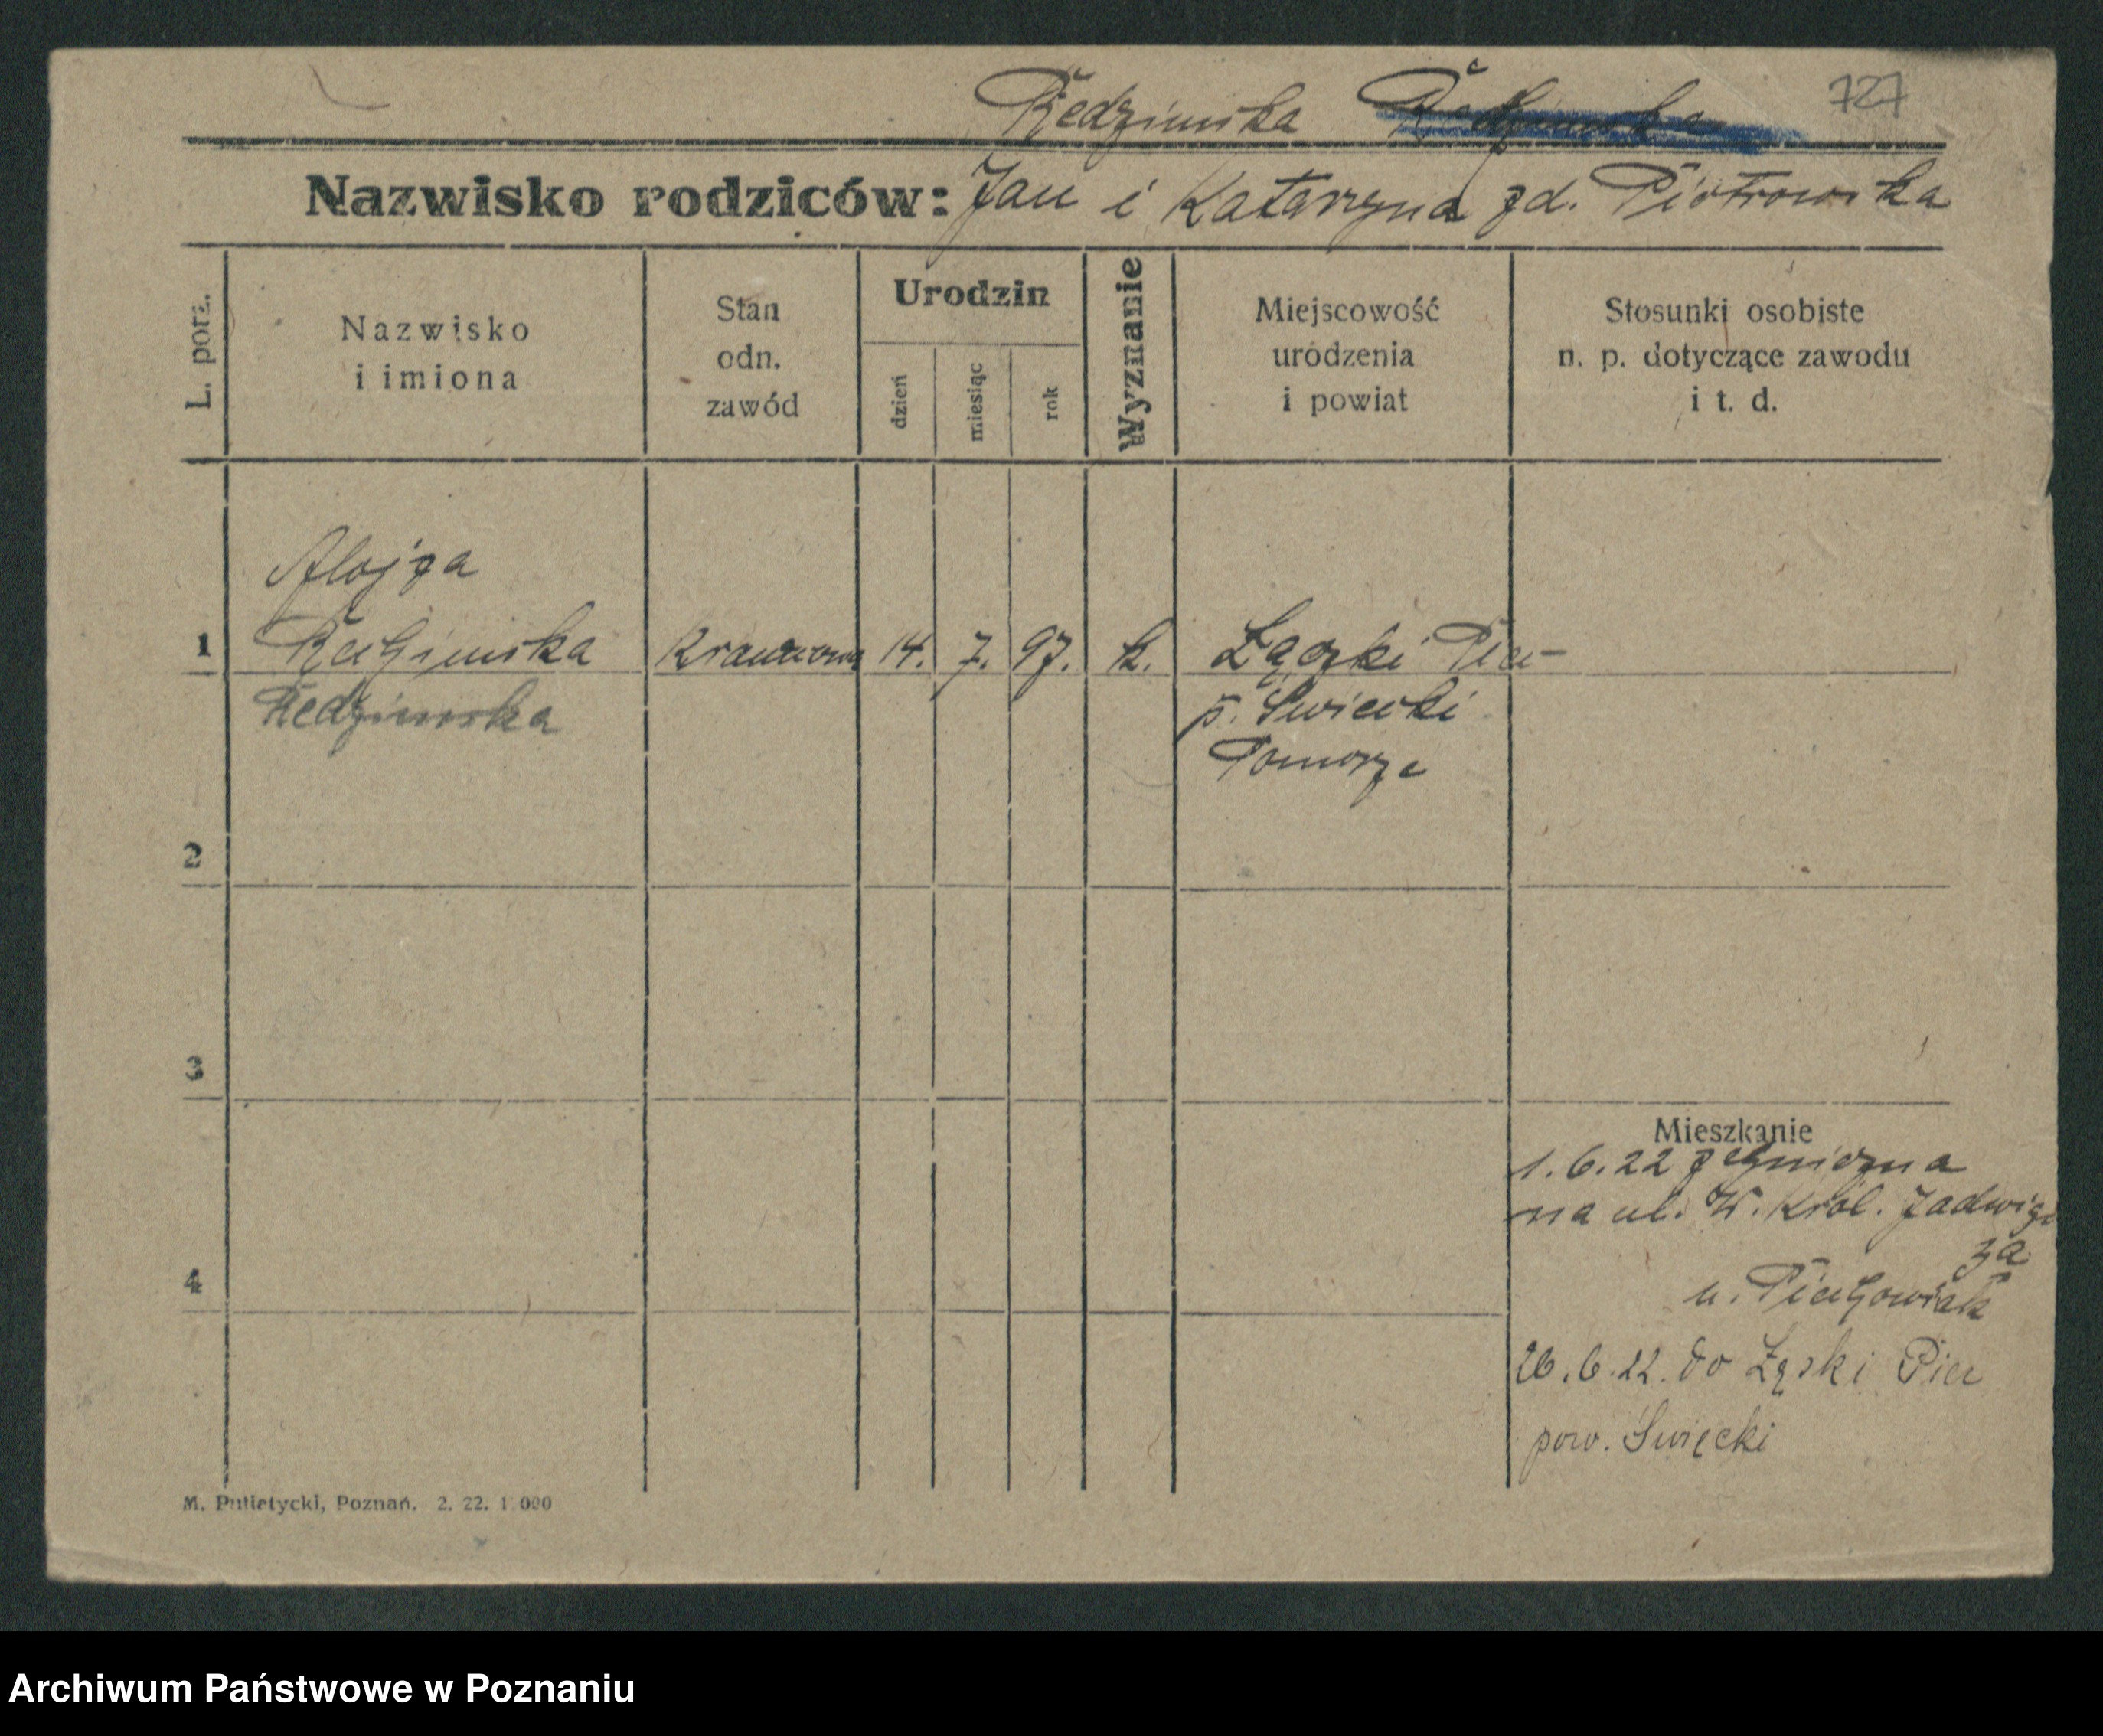 727
Redzimska
Nazwisko rodziców: Jan i Katarzyna zd. Piotrowska
L. porz.
Nazwisko
i imiona
Stan
odn.
zawód
Urodzin
dzień
miesiąc
rok
Wyznanie
Miejscowość
urodzenia
i powiat
Stosunki osobiste
n. p. dotyczące zawodu
i t. d.
Alojza
1 Krawcowa 14. 7. 97. k. Łączki
Redzimska
p. Świecki
Pomorze
2
3
4
Mieszkanie
1.6.22 z Gniezna
na ul. Król. Jadwigi
u.
26.6.22. do Łąski
pow. Świecki
M. Putiatycki, Poznań. 2. 22. 1 000
Archiwum Państwowe w Poznaniu